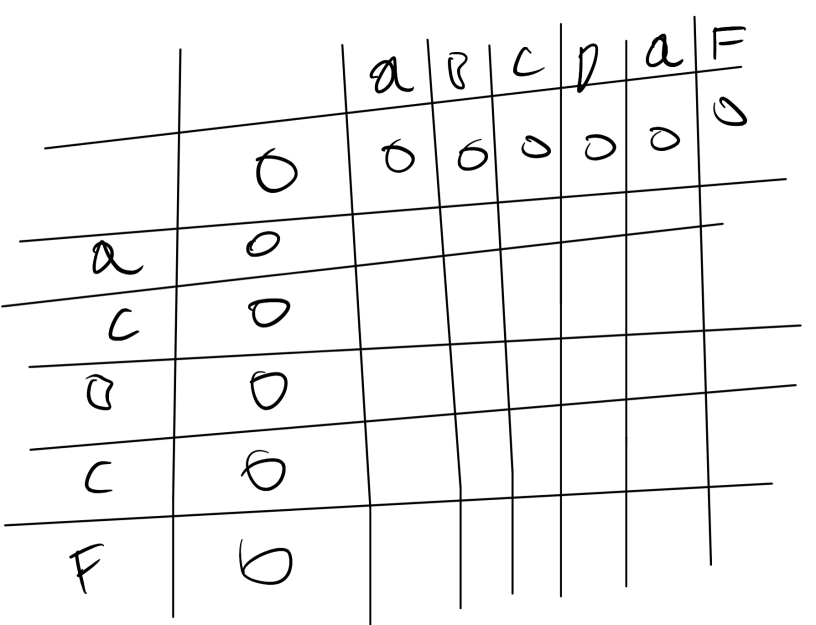 a B C D a F
0 0 0 0 0 0 0
a 0
C 0
B 0
C 0
F 0